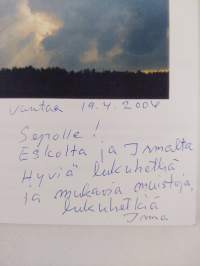 Vantaa 19.4.2004
Sepolle!
Eskolta ja Irmalta
Hyviä lukuhetkiä
ja mukavia muistoja,
lukuhetkiä
Irma